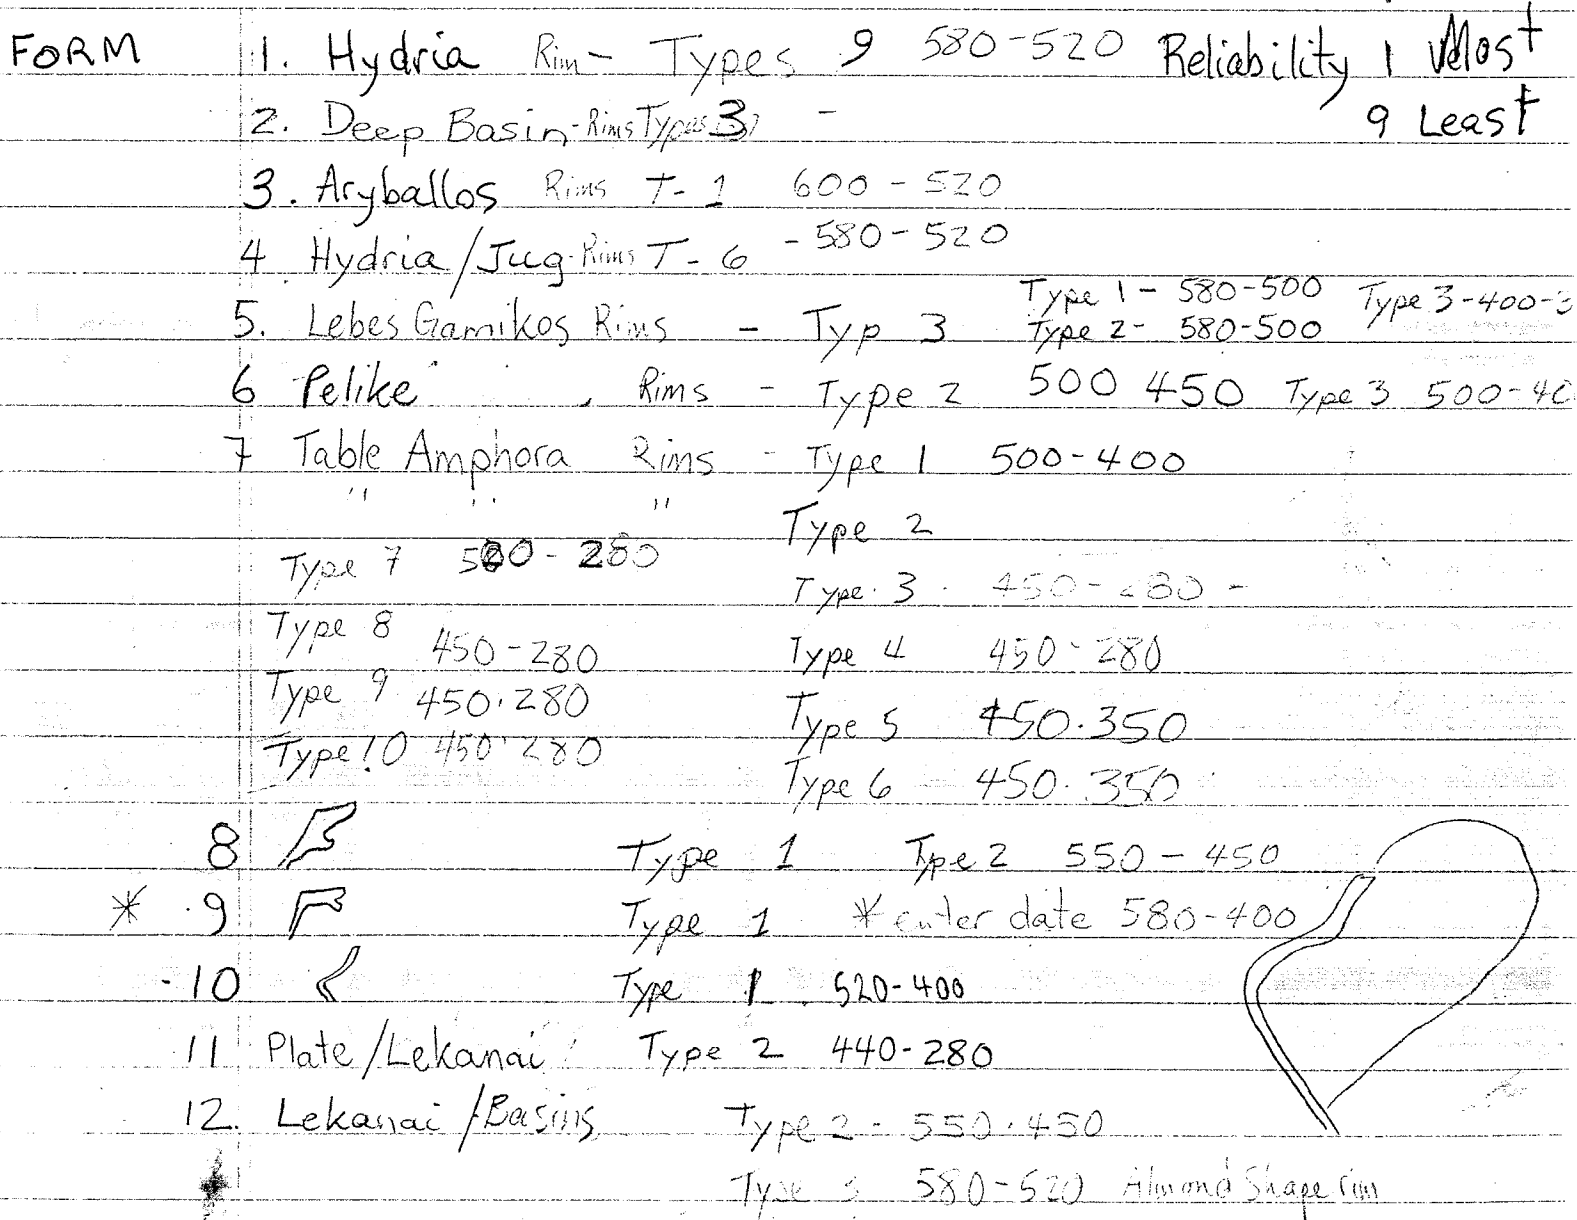 FORM 1. Hydria Rim - Types 9 580-520 Reliability 1 Most
9 Least
2. Deep Basin - Rims Types 3 -
3. Aryballos Rims T-1 600-520
4 Hydria/Jug Rims T-6 - 580-520
Type 1 - 580-500 Type 3-400-3
5. Lebes Gamikos Rims - Typ 3 Type 2- 580-500
6 Pelike Rims - Type 2 500 450 Type 3 500-40
7 Table Amphora Rims - Type 1 500-400
" " " Type 2
Type 7 500-280
Type 3 450-280 -
Type 8 450-280 Type 4 450-280
Type 9 450.280 Type 5 450.350
Type 10 450.280 Type 6 450.350
8 Type 1 Type 2 550-450
* 9 Type 1 * enter date 580-400
-10 Type 1 520-400
11 Plate/Lekanai Type 2 440-280
12. Lekanai/Basins Type 2 - 550.450
Type 3 580-520 Almond Shape rim